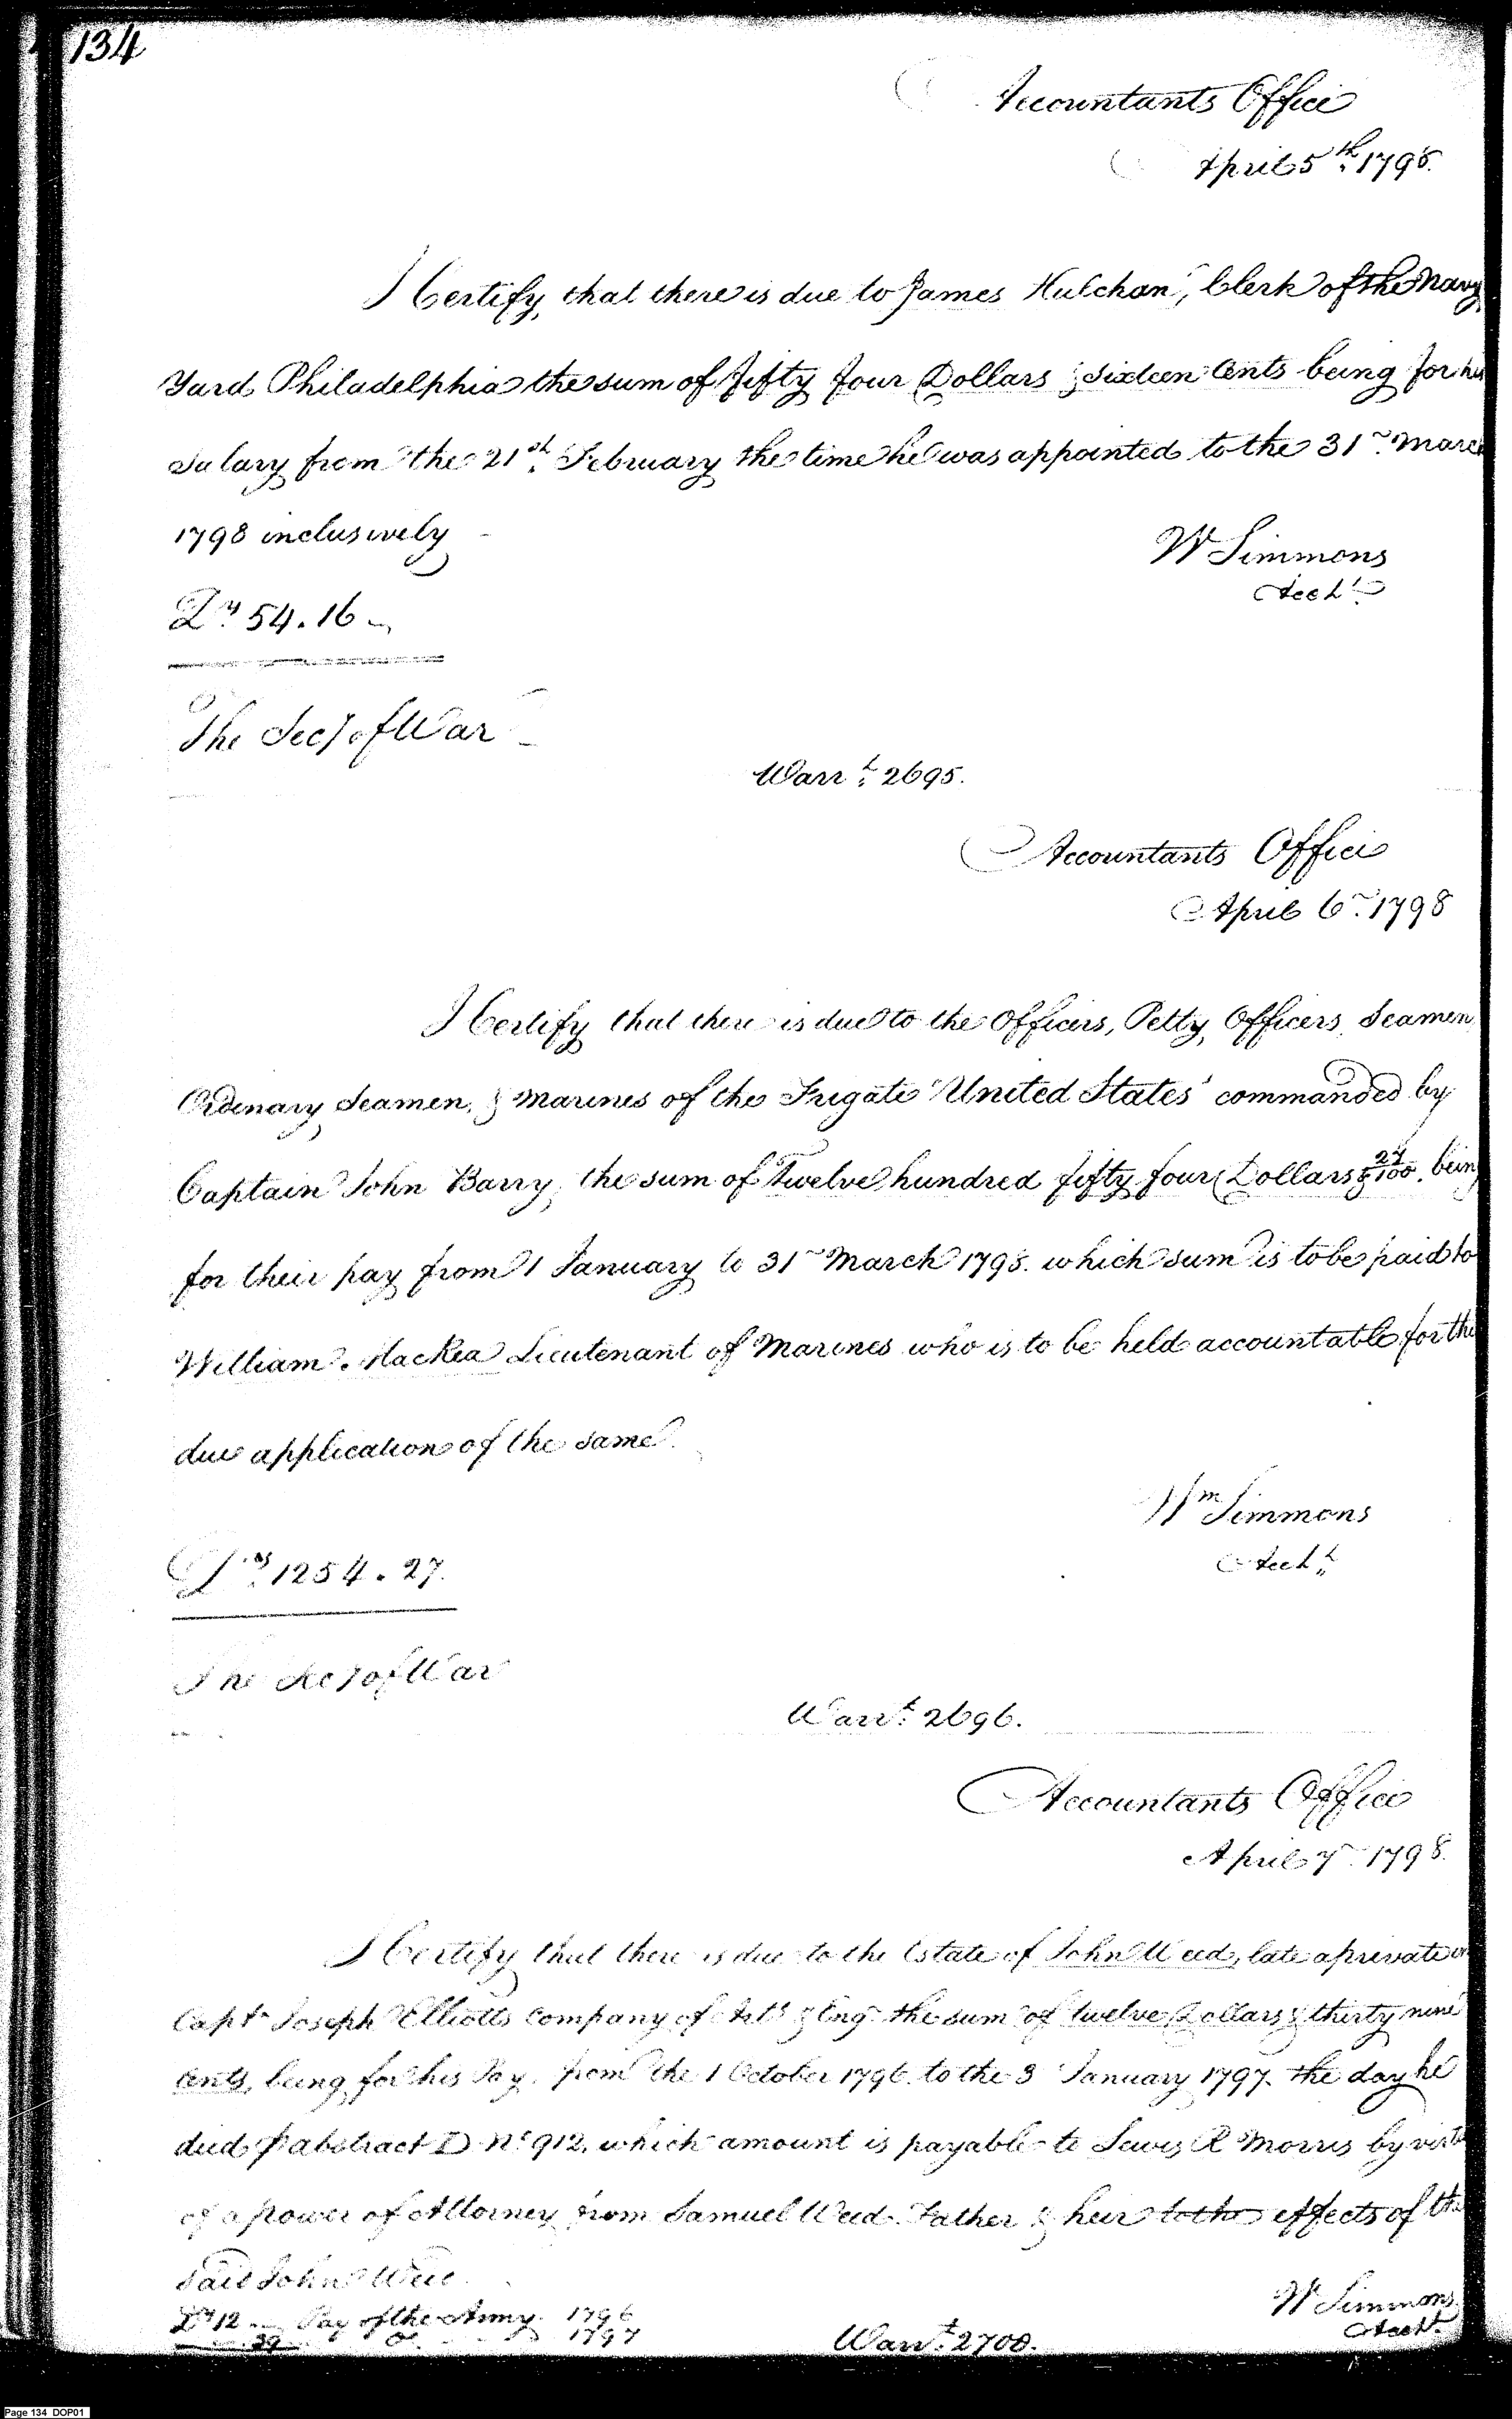 134
Accountants Office
April 5th 1798.
I Certify, that there is due to James Hutchan, Clerk of the Navy
Yard Philadelphia the sum of fifty four Dollars & sixteen Cents being for his
Salary from the 21st February the time he was appointed to the 31 March
1798 inclusively
W Simmons
Acct
Drs 54.16
The Secy of War
Warrt 2695.
Accountants Office
April 6 1798
I Certify that there is due to the Officers, Petty Officers, Seamen
Ordinary Seamen, & Marines of the Frigate United States commanded by
Captain John Barry, the sum of Twelve hundred fifty four Dollars & 27/100, being
for their pay from 1 January to 31 March 1798. which sum is to be paid to
William MacRea Lieutenant of Marines who is to be held accountable for the
due application of the same.
Wm Simmons
Acct
Drs 1254.27.
The Secy of War
Warrt 2696.
Accountants Office
April 7 1798.
I Certify that there is due to the Estate of John Weed, late a private in
Capt Joseph Elliotts Company of Arts & Eng the sum of twelve Dollars & thirty nine
Cents, being for his Pay from the 1 October 1796 to the 3 January 1797. the day he
died p abstract D No 912, which amount is payable to Lewis R Morris by virtue
of a power of Attorney from Samuel Weed Father & heir to the effects of the
Said John Weed
W Simmons
Acct
Drs 12 Pay of the Army 1796
.39 Do 1797
Warrt 2700.
Page 134 DOP01